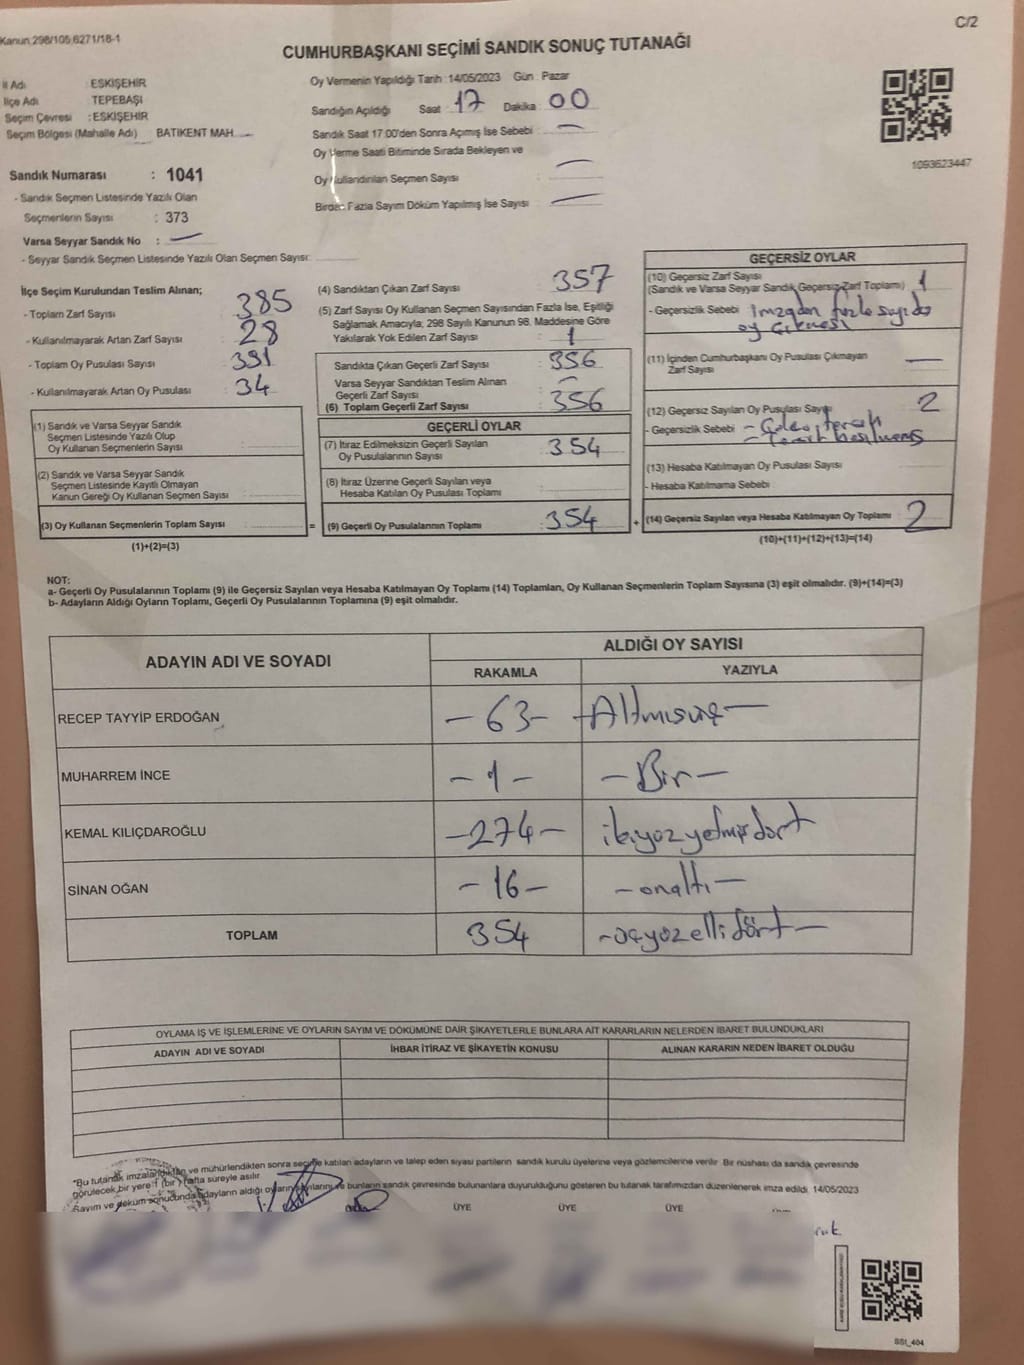 C/2
Kanun 298/105,6271/18-1
CUMHURBAŞKANI SEÇİMİ SANDIK SONUÇ TUTANAĞI
İl Adı : ESKİŞEHİR
İlçe Adı TEPEBAŞI
Seçim Çevresi : ESKİŞEHİR
Seçim Bölgesi (Mahalle Adı) BATIKENT MAH.
Oy Vermenin Yapıldığı Tarih :14/05/2023 Gün : Pazar
Sandığın Açıldığı Saat 17 Dakika 00
Sandık Saat 17:00'den Sonra Açımış İse Sebebi : —
Oy Verme Saati Bitiminde Sırada Bekleyen ve
Oy Kullandırılan Seçmen Sayısı : —
Birden Fazla Sayım Döküm Yapılmış İse Sayısı : —
1093623447
Sandık Numarası : 1041
- Sandık Seçmen Listesinde Yazılı Olan
Seçmenlerin Sayısı : 373
Varsa Seyyar Sandık No : —
- Seyyar Sandık Seçmen Listesinde Yazılı Olan Seçmen Sayısı:
İlçe Seçim Kurulundan Teslim Alınan;
- Toplam Zarf Sayısı : 385
- Kullanılmayarak Artan Zarf Sayısı : 28
- Toplam Oy Pusulası Sayısı : 391
- Kullanılmayarak Artan Oy Pusulası : 34
(1) Sandık ve Varsa Seyyar Sandık
Seçmen Listesinde Yazılı Olup
Oy Kullanan Seçmenlerin Sayısı :
(2) Sandık ve Varsa Seyyar Sandık
Seçmen Listesinde Kayıtlı Olmayan
Kanun Gereği Oy Kullanan Seçmen Sayısı :
(3) Oy Kullanan Seçmenlerin Toplam Sayısı :
(1)+(2)=(3)
(4) Sandıktan Çıkan Zarf Sayısı : 357
(5) Zarf Sayısı Oy Kullanan Seçmen Sayısından Fazla İse, Eşitliği
Sağlamak Amacıyla; 298 Sayılı Kanunun 98. Maddesine Göre
Yakılarak Yok Edilen Zarf Sayısı : 1
Sandıkta Çıkan Geçerli Zarf Sayısı : 356
Varsa Seyyar Sandıktan Teslim Alınan
Geçerli Zarf Sayısı : —
(6) Toplam Geçerli Zarf Sayısı : 356
GEÇERLİ OYLAR
(7) İtiraz Edilmeksizin Geçerli Sayılan
Oy Pusulalarının Sayısı : 354
(8) İtiraz Üzerine Geçerli Sayılan veya
Hesaba Katılan Oy Pusulası Toplamı :
= (9) Geçerli Oy Pusulalarının Toplamı : 354
GEÇERSİZ OYLAR
(10) Geçersiz Zarf Sayısı
(Sandık ve Varsa Seyyar Sandık Geçersiz Zarf Toplamı) : 1
- Geçersizlik Sebebi : imzadan fazla sayıda
oy çıkması
(11) İçinden Cumhurbaşkanı Oy Pusulası Çıkmayan
Zarf Sayısı : —
(12) Geçersiz Sayılan Oy Pusulası Sayısı : 2
- Geçersizlik Sebebi
(13) Hesaba Katılmayan Oy Pusulası Sayısı :
- Hesaba Katılmama Sebebi
+ (14) Geçersiz Sayılan veya Hesaba Katılmayan Oy Toplamı : 2
(10)+(11)+(12)+(13)=(14)
NOT:
a- Geçerli Oy Pusulalarının Toplamı (9) ile Geçersiz Sayılan veya Hesaba Katılmayan Oy Toplamı (14) Toplamları, Oy Kullanan Seçmenlerin Toplam Sayısına (3) eşit olmalıdır. (9)+(14)=(3)
b- Adayların Aldığı Oyların Toplamı, Geçerli Oy Pusulalarının Toplamına (9) eşit olmalıdır.
ADAYIN ADI VE SOYADI ALDIĞI OY SAYISI
RAKAMLA YAZIYLA
RECEP TAYYİP ERDOĞAN -63- -Altmışüç-
MUHARREM İNCE -1- -Bir-
KEMAL KILIÇDAROĞLU -274- ikiyüzyetmişdört
SİNAN OĞAN -16- -onaltı-
TOPLAM 354 -üçyüzellidört-
OYLAMA İŞ VE İŞLEMLERİNE VE OYLARIN SAYIM VE DÖKÜMÜNE DAİR ŞİKAYETLERLE BUNLARA AİT KARARLARIN NELERDEN İBARET BULUNDUKLARI
ADAYIN ADI VE SOYADI İHBAR İTİRAZ VE ŞİKAYETİN KONUSU ALINAN KARARIN NEDEN İBARET OLDUĞU
"Bu tutanak imzalandıktan ve mühürlendikten sonra seçime katılan adayların ve talep eden siyasi partilerin sandık kurulu üyelerine veya gözlemcilerine verilir. Bir nüshası da sandık çevresinde
görülecek bir yere 1 (bir) hafta süreyle asılır.
Sayım ve döküm sonucunda adayların aldığı oyların sayılarını ve bunların sandık çevresinde bulunanlara duyurulduğunu gösteren bu tutanak tarafımızdan düzenlenerek imza edildi. 14/05/2023
ÜYE ÜYE ÜYE
SSt_404